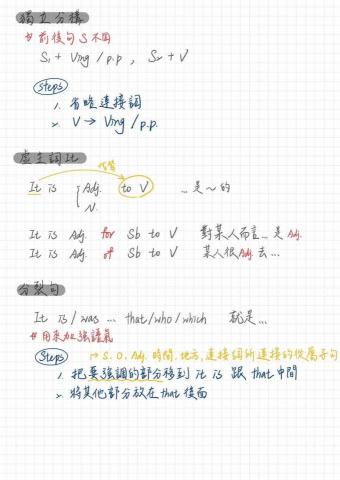 獨立分構
# 前後句 S 不同
S₁ + Ving / p.p , S₂ + V
Steps
1. 省略連接詞
2. V → Ving / p.p.
虛主詞It
代替
It is { Adj. to V ...是~的
N.
It is Adj. for Sb to V 對某人而言...是 Adj.
It is Adj. of Sb to V 某人很Adj去...
分裂句
It is / was ... that/who/which 就是...
# 用來加強語氣
Steps → S. O. Adj. 時間. 地方, 連接詞所連接的從屬子句
1. 把要強調的部分移到 it is 跟 that 中間
2. 將其他部分放在 that 後面